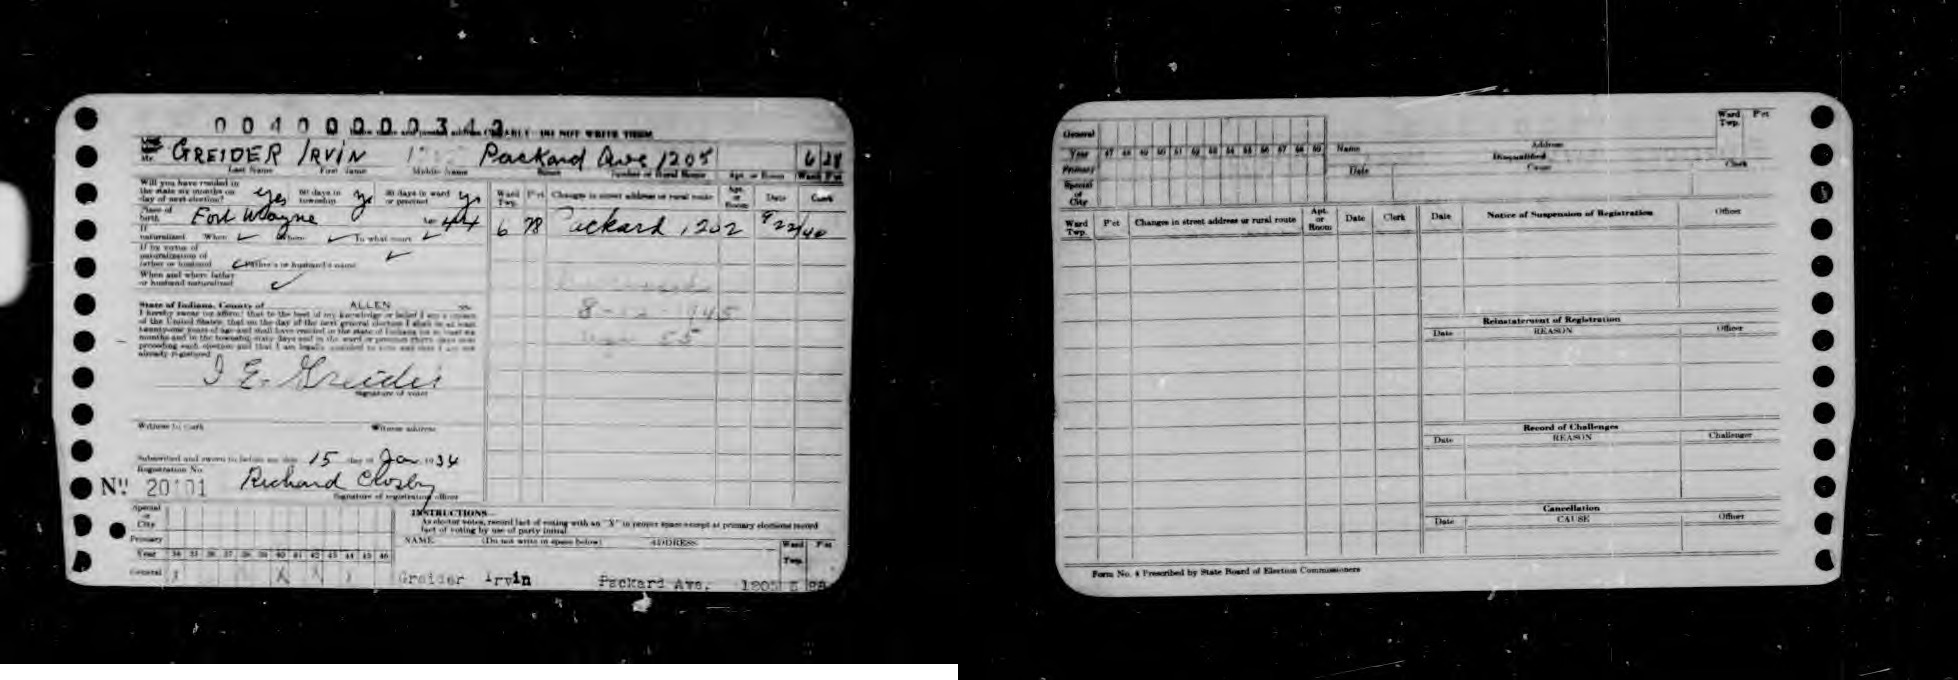 0040000342
CLEARLY - DO NOT WRITE THEM
Mr. GREIDER IRVIN Packard Ave 1205 6 28
Last Name First Name Middle Name Street Number or Rural Route Apt. or Room Ward P'ct
Will you have resided in
the state six months on
day of next election? Yes 60 days in township Yes 30 days in ward or precinct Yes
Ward Twp. P'ct Changes in street address or rural route Apt. or Room Date Clerk
Place of birth Fort Wayne 44
6 78 Packard 1202 9/22/40
If naturalized When Where To what court
If by virtue of
naturalization of
father or husband Father's or husband's name
When and where father
or husband naturalized
8-12-1945
55
State of Indiana, County of ALLEN ss:
I hereby swear (or affirm) that to the best of my knowledge or belief I am a citizen
of the United States; that on the day of the next general election I shall be at least
twenty-one years of age and shall have resided in the state of Indiana for at least six
months and in the township sixty days and in the ward or precinct thirty days next
preceding such election and that I am legally entitled to vote and that I am not
already registered
I E. Greider
Signature of voter
Witness to mark Witness address
Subscribed and sworn to before me this 15 day of Jan 1934
Registration No.
No. 20101 Richard Closby
Signature of registration officer
INSTRUCTIONS
As elector votes, record fact of voting with an "X" in proper space except at primary elections record
fact of voting by use of party initial
Special or City
Primary
Year 34 35 36 37 38 39 40 41 42 43 44 45 46
General X X X
NAME (Do not write in space below) ADDRESS Ward Twp. P'ct
Greider Irvin Packard Ave. 1205
General
Year 47 48 49 50 51 52 53 54 55 56 57 58 59
Primary
Special or City
Name Address Ward Twp. P'ct
Disqualified
Date Cause Clerk
Ward Twp. P'ct Changes in street address or rural route Apt. or Room Date Clerk
Date Notice of Suspension of Registration Officer
Reinstatement of Registration
Date REASON Officer
Record of Challenges
Date REASON Challenger
Cancellation
Date CAUSE Officer
Form No. 4 Prescribed by State Board of Election Commissioners